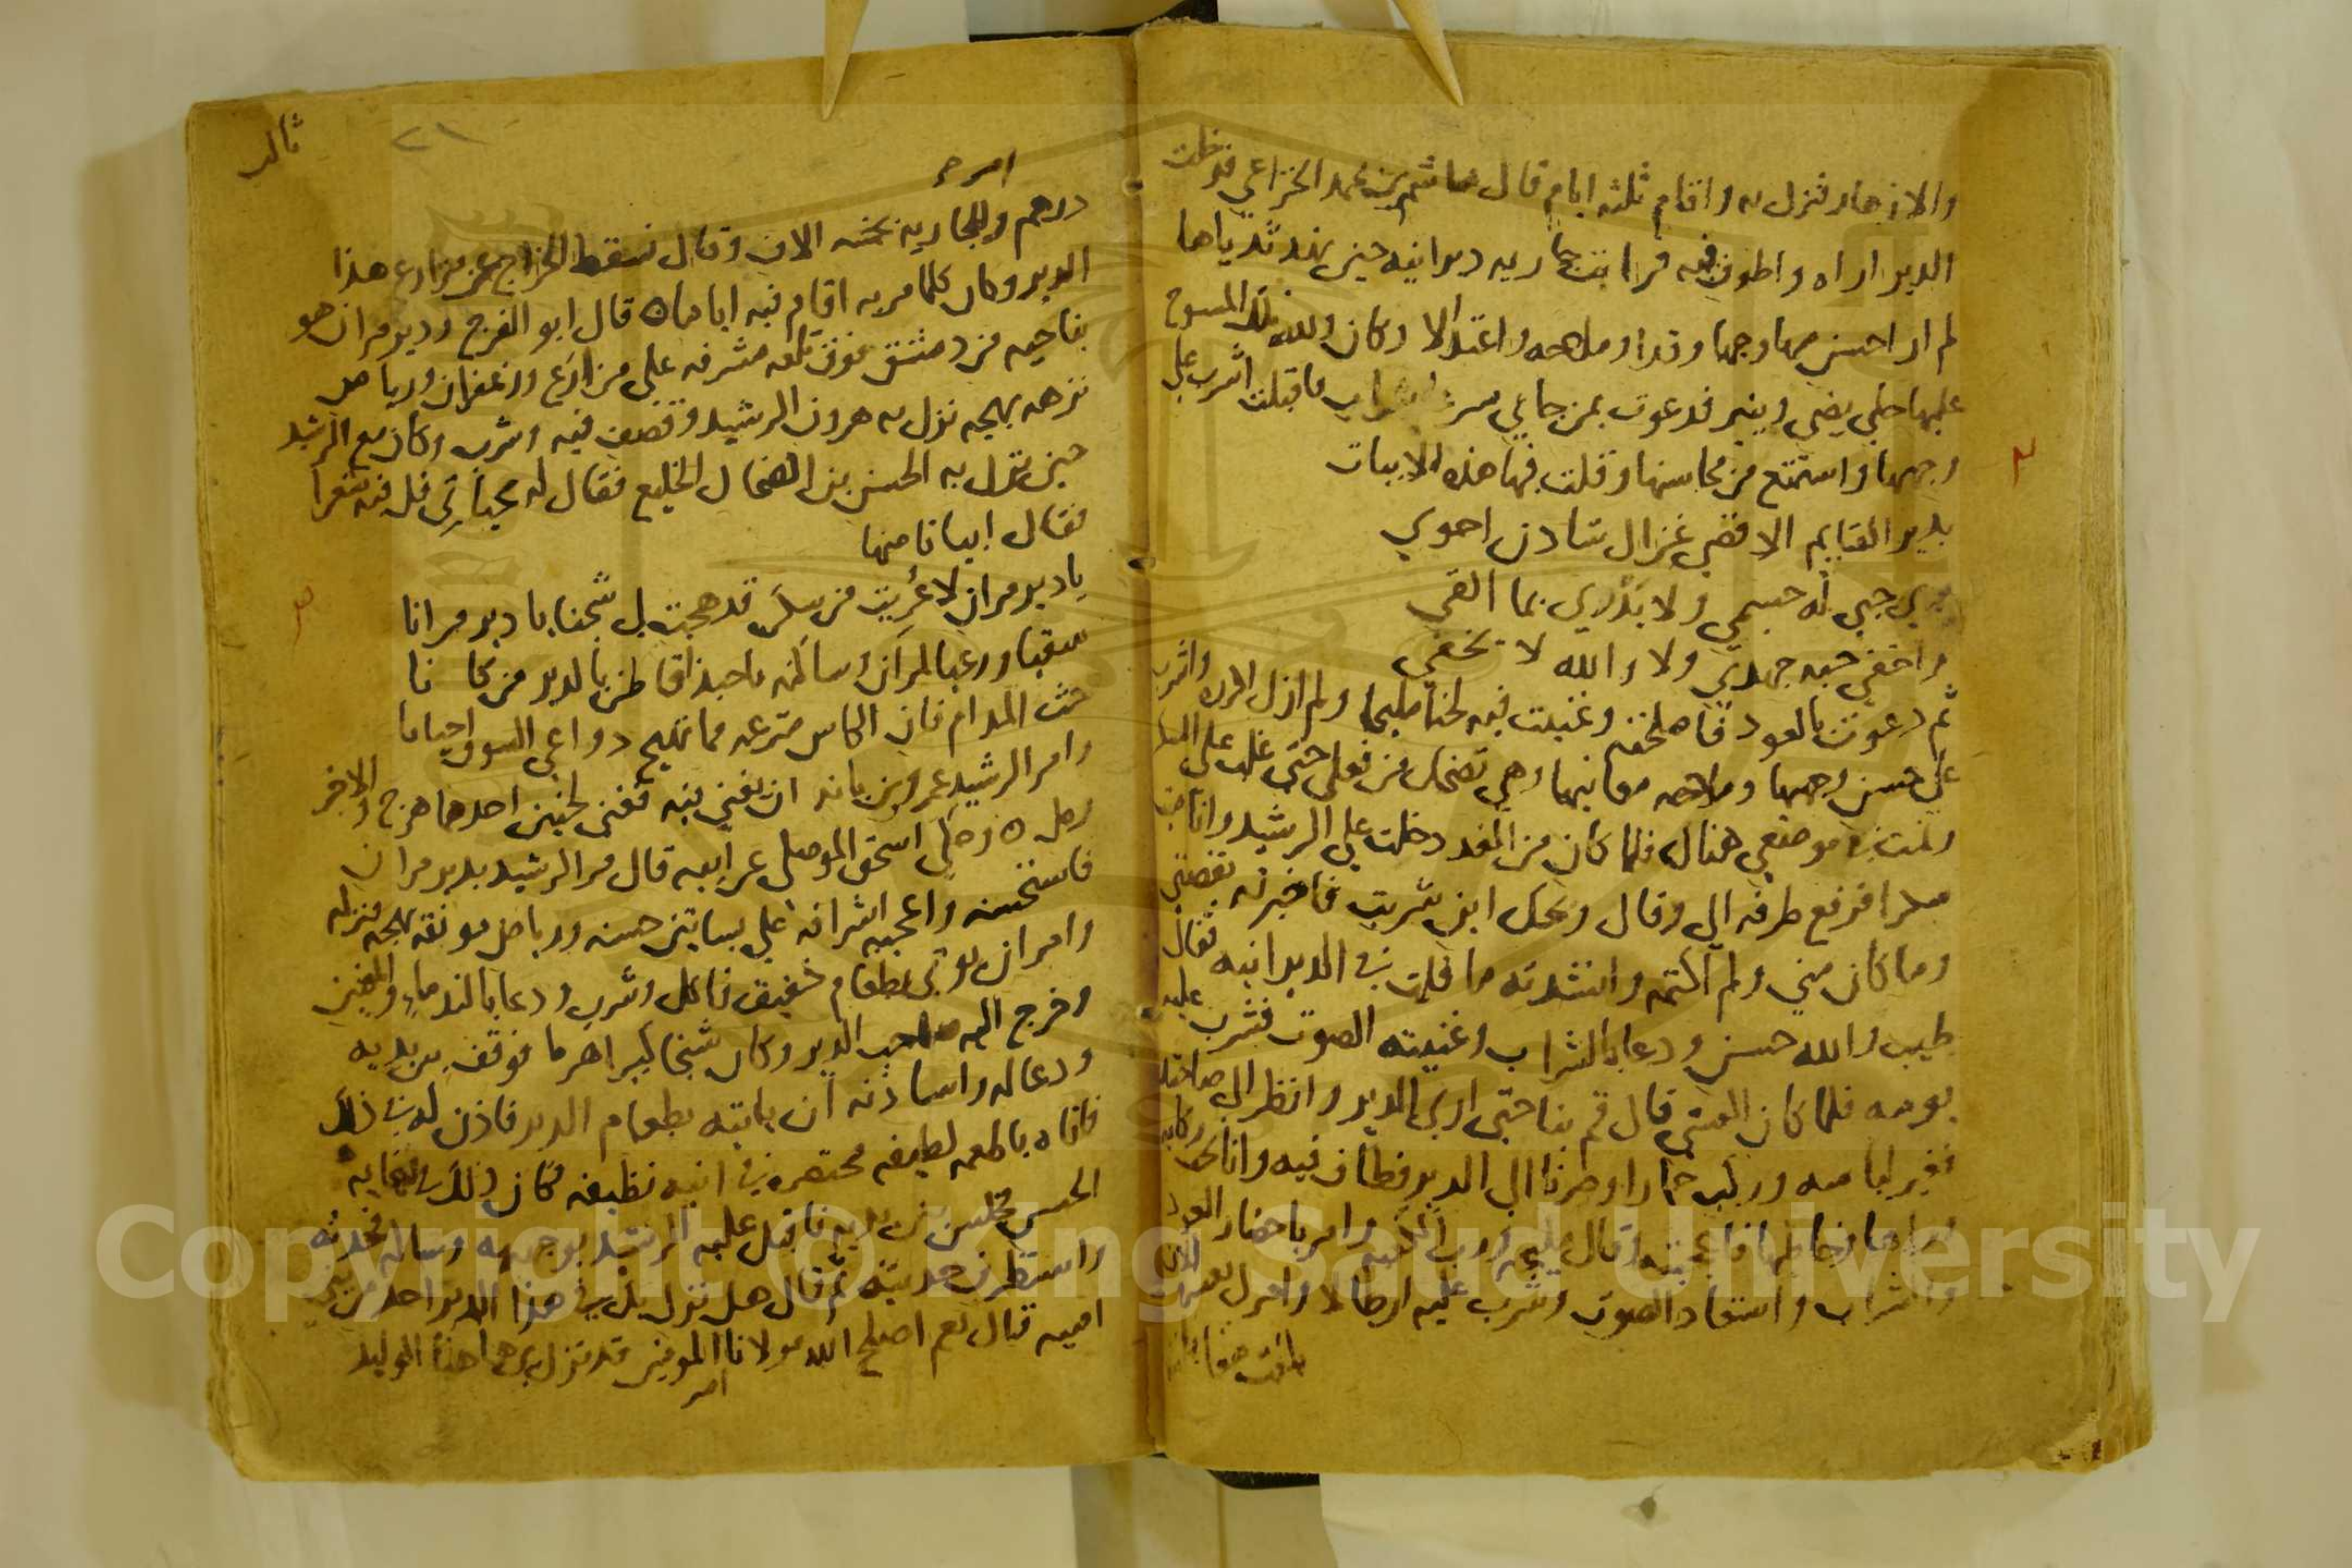 والازهار فنزل به واقام ثلثه ايام قال هاشم بن محمد الخزاعي فدخلت
الدير اراه واطوف فيه فرايت جاريه ديرانيه حين نهد ثدياها
لم ار احسن منها وجها وقدا وملاحه واعتدالا وكان والله تلك المسوح
عليها حلي يضي وينير فدعوت بمن جاءني بشراب فاقبلت اشرب على
وجهها واستمتع من محاسنها وقلت فيها هذه الابيات
بدير القايم الاقصي غزال شادن احوي
بري حبي له جسمي ولا يدري بما القي
واخفي حبه جهدي ولا والله لا يخفي
ثم دعوت بالعود فاصلحته وغنيت فيه لحنا مليحا ولم ازل اكرره واشرب
علي حسن وجهها وملاحه معانيها وهي تضحك من فعلي حتي غلب علي السكر
ونمت في موضعي هنالك فلما كان من الغد دخلت علي الرشيد وانا ميت
سكرا فرفع طرفه الي وقال ويحك اين شربت فاخبرته بقصتي
وما كان مني ولم اكتمه وانشدته ما قلت في الديرانيه فقال
طيب والله حسن ودعا بالشراب وغنيته الصوت فشرب عليه
يومه فلما كان العشي قال قم بنا حتي اري الدير وانظر الي صاحبتك
فغير لباسه وركب حمارا وصرنا الي الدير فطاف فيه وانا تحت ركابه
وراها وخاطبها فاعجبته وقال مليحه ورب الكعبه وامر باحضار العود
والشراب واستعاد الصوت وشرب عليه ارطالا وامر لي بعشره الاف
درهم وللجاريه بخمسه الاف وقال نسقط الخراج عن مزارع هذا
الدير وكان كلما مر به اقام فيه اياما ه قال ابو الفرج ودير مران هو
بناحيه من دمشق فوق تلعه مشرفه علي مزارع وزعفران ورياض
نزهه بهجه نزل به هرون الرشيد وقصف فيه وشرب وكان مع الرشيد
حين نزل به الحسن بن الضحاك الخليع فقال له بحياتي قل فيه شعرا
فقال ابياتا منها
يا دير مران لا عريت من سكن قد هجت لي شجنا يا دير مرانا
سقيا ورعيا لمران وساكنه يا حبذا قاطن بالدير من كانا
حث المدام فان الكاس مترعه مما تهيج دواعي الشوق احيانا
وامر الرشيد عمرو بن بانه ان يغني فيه فغني لحنين احدهما هزج والاخر
رمل ه وحكي اسحق الموصلي عن ابيه قال مر الرشيد بدير مران
فاستحسنه واعجبه اشرافه علي بساتين حسنه ورياض مونقه بهجه فنزله
وامر ان يوتي بطعام خفيف فاكل وشرب ودعا بالندماء والمغنين
وخرج اليه صاحب الدير وكان شيخا كبيرا هرما فوقف بين يديه
ودعا له واستاذنه ان ياتيه بطعام الدير فاذن له في ذلك
فاتاه باطعمه لطيفه مختصره في انيه نظيفه فكان ذلك في نهايه
الحسن فجلس بين يديه فاقبل عليه الرشيد بوجهه وساله فحدثه
واستظرف حديثه ثم قال هل نزل بك في هذا الدير احد من بني
اميه قال نعم اصلح الله مولانا امير المومنين قد نزل بي ههنا الوليد